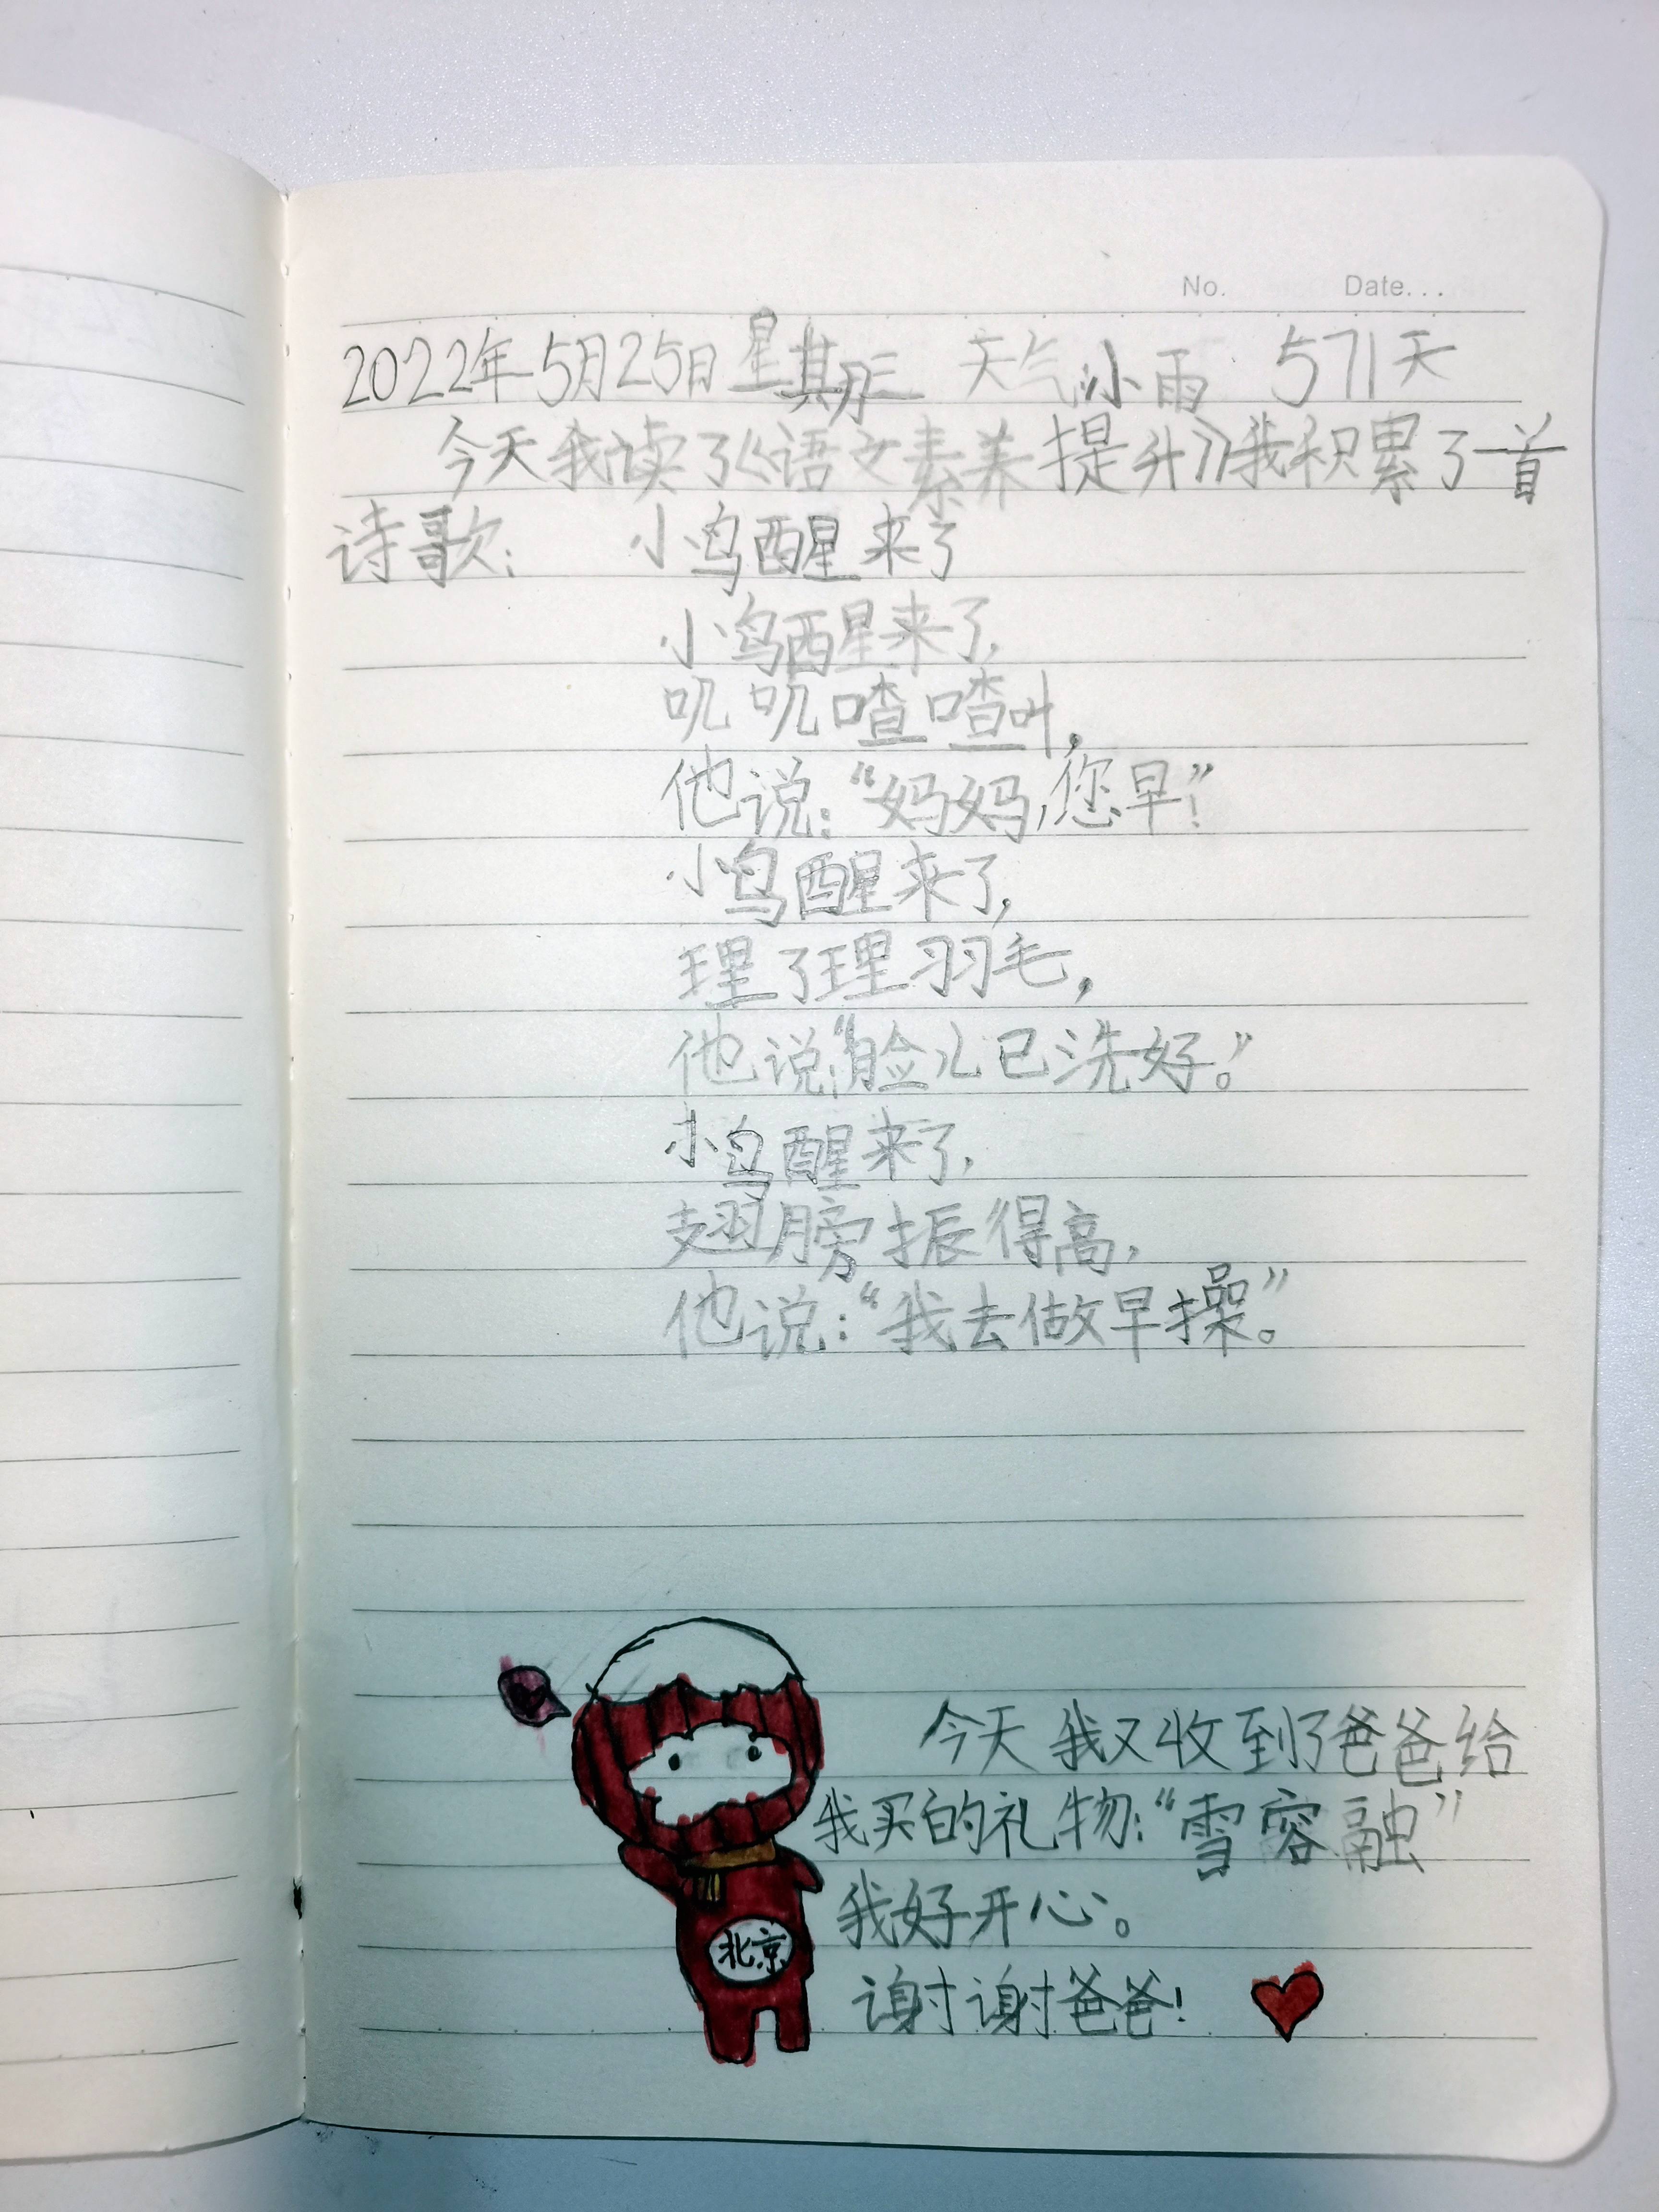 No. Date...
2022年5月25日 星期三 天气小雨 571天
今天我读了《语文素养提升》我积累了一首
诗歌： 小鸟醒来了
小鸟醒来了，
叽叽喳喳叫，
他说：“妈妈，您早！”
小鸟醒来了，
理了理羽毛，
他说：“脸儿已洗好。”
小鸟醒来了，
翅膀振得高，
他说：“我去做早操”。
今天我又收到了爸爸给
我买的礼物：“雪容融”
我好开心。
谢谢爸爸！
北京